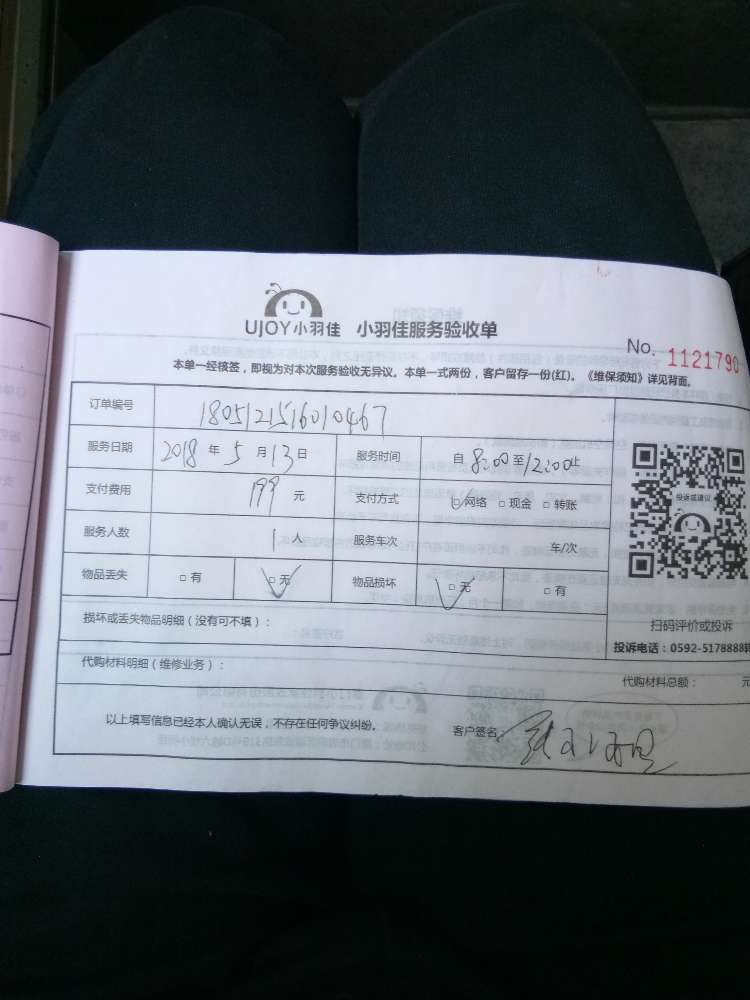 UJOY小羽佳 小羽佳服务验收单
No. 1121790
本单一经核签，即视为对本次服务验收无异议。本单一式两份，客户留存一份(红)。《维保须知》详见背面。
订单编号 180512151601​0467
服务日期 2018 年 5 月 13 日 服务时间 自 8:00 至 12:00止
支付费用 199 元 支付方式 □网络 □现金 □转账
服务人数 1 人 服务车次 车/次
物品丢失 □有 □无 物品损坏 □无 □有
投诉或建议
扫码评价或投诉
投诉电话：0592-5178888
损坏或丢失物品明细（没有可不填）：
代购材料明细（维修业务）： 代购材料总额： 元
以上填写信息已经本人确认无误，不存在任何争议纠纷。 客户签名：